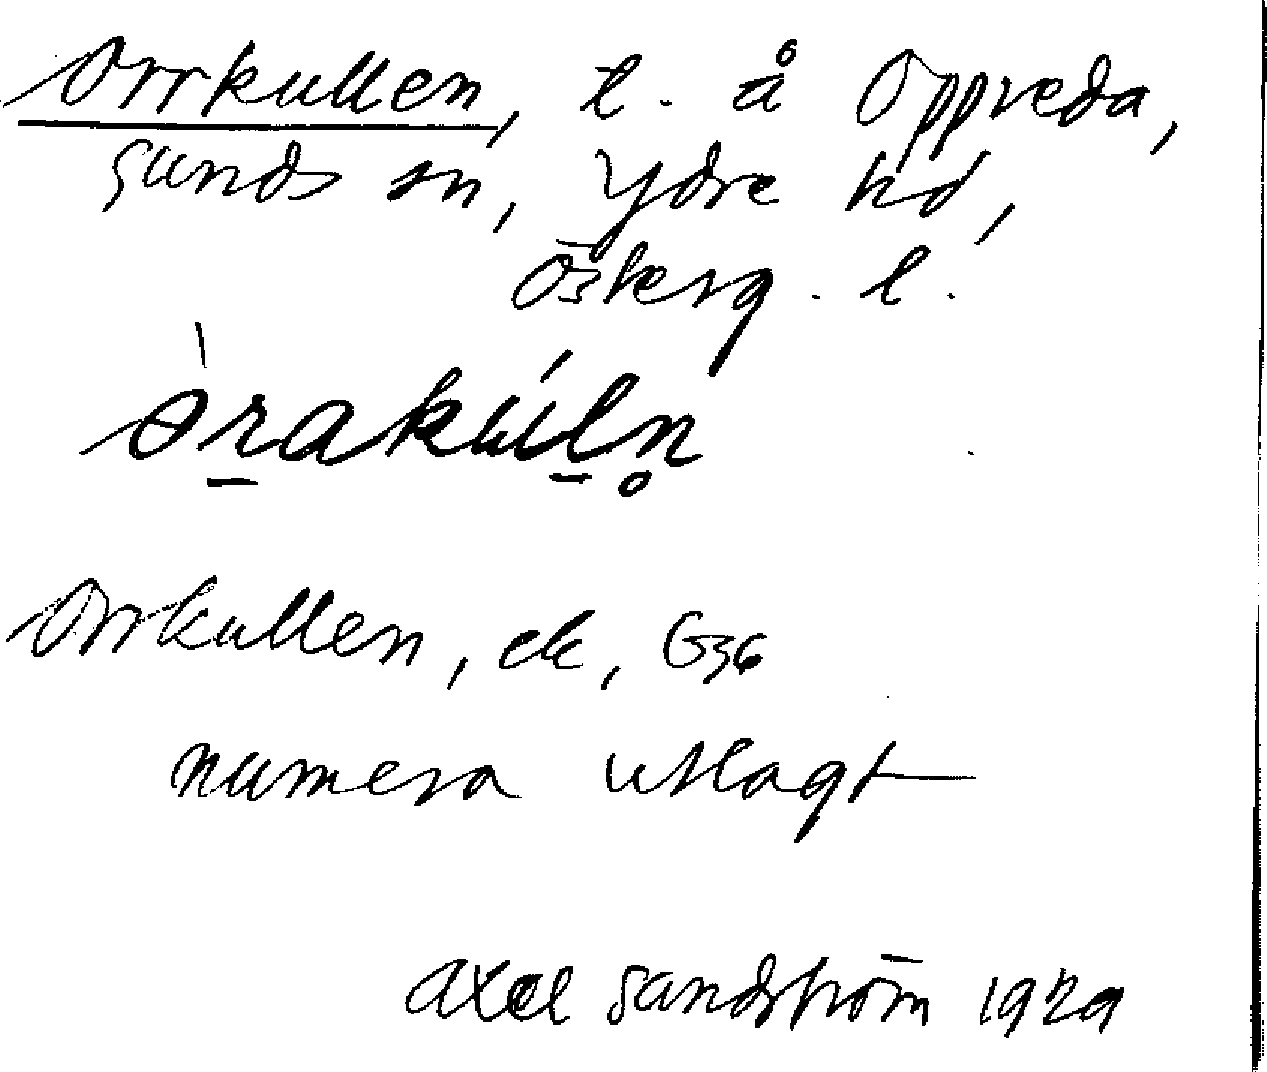 Orrkullen, l. å Oppreda,
Sunds sn, Ydre hd,
Österg. l.
òrakúln̥
Orrkullen, ek, G36
numera utlagt
Axel Sandström 1929